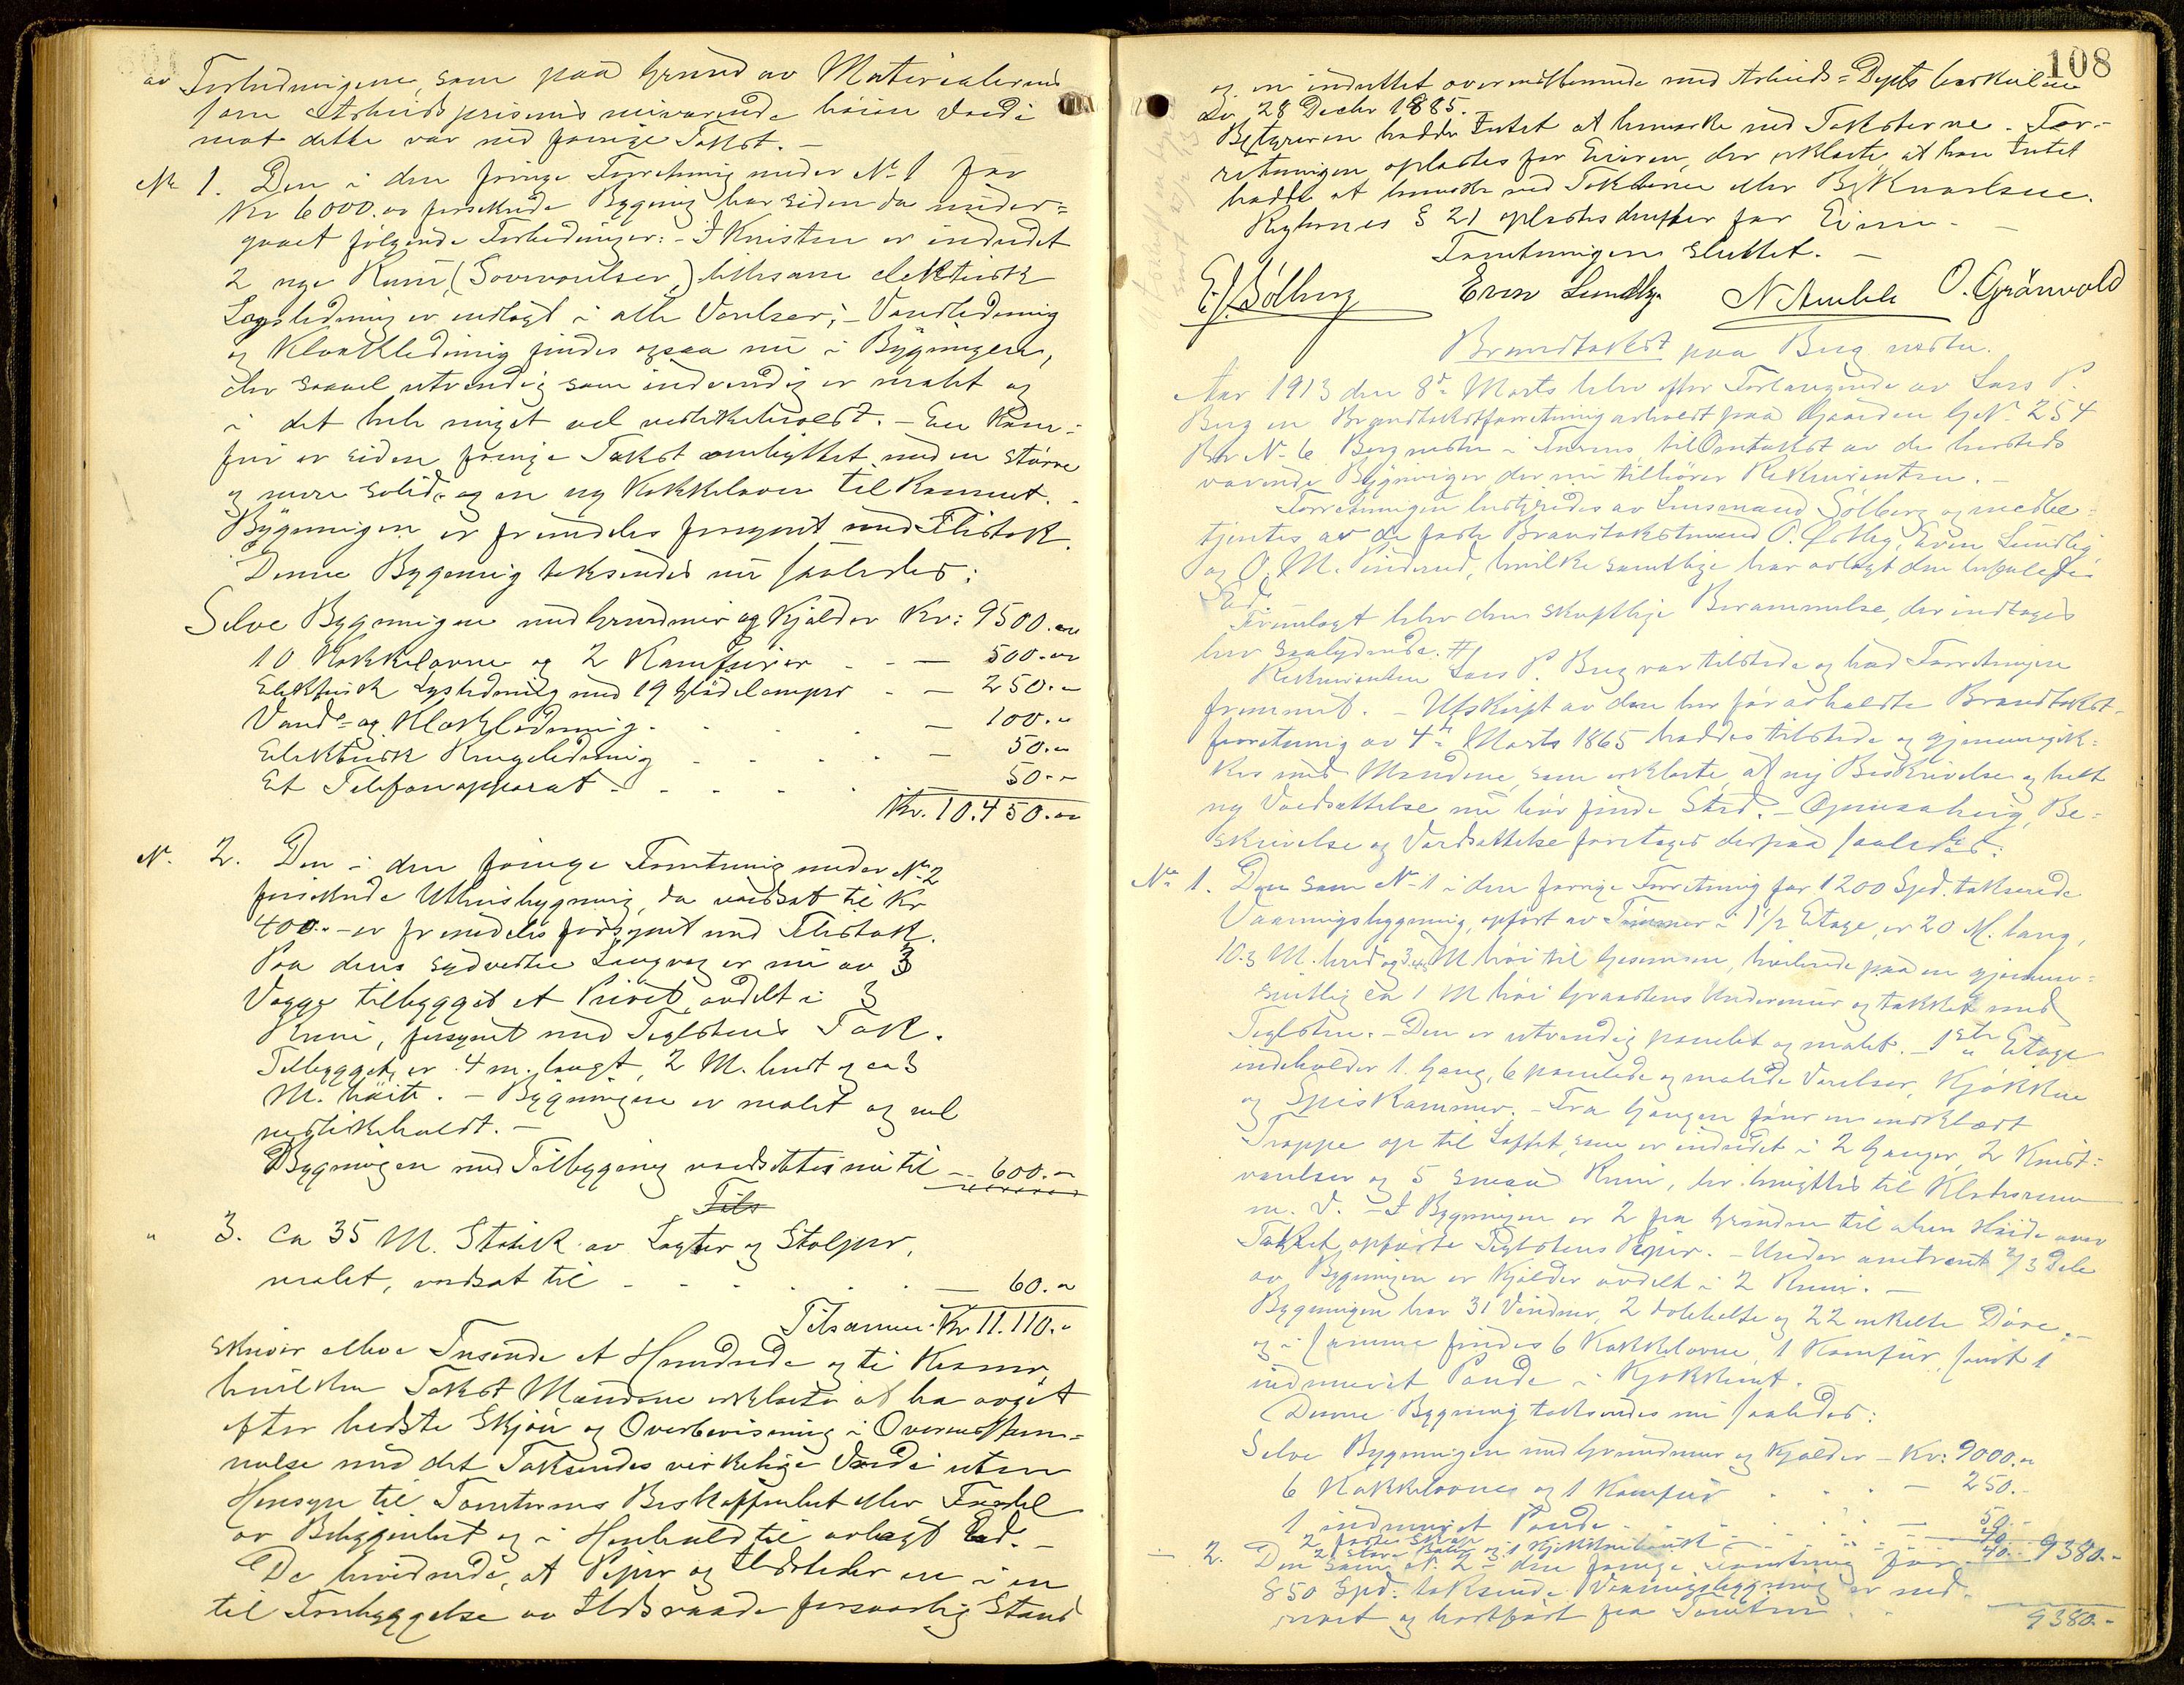 av Forbedringene, som paa Grund av Materialernes
sam Arbeidsprisernes nuværende høiere Værdi
mot dette var ved forrige Takst. –
No 1. Den i den forrige Forretning under No 1 for
Kr 6000.00 forsikrede Bygning har siden da under=
gaaet følgende Forbedringer: – I Kvisten er indredet
2 nye Rum (Soveværelser,) likesom elektrisk
Lysledning er indlagt i alle Værelser; – Vandledning
og Kloakledning findes ogsaa nu i Bygningen,
der saavel utvendig som indvendig er malet og
i det hele meget vel vedlikeholdt. – En Kom=
fur er siden forrige Takst ombyttet med en større
og mere solid, og en ny Kakkelovn tilkommet. –
Bygningen er fremdeles forsynt med Flistak.
Denne Bygning takseredes nu saaledes:
Selve Bygningen med Grundmur og Kjælder Kr: 9500.00
10 Kakkelovne og 2 Komfurer - - — 500.00
Elektrisk Lysledning med 19 Glødelamper - — 250.-
Vand= og Kloakledning - - - — 100.-
Elektrisk Ringeledning - - - - — 50.-
Et Telefonapparat - - - - - 50.-
Kr. 10.450.00
No. 2. Den i den forrige Forretning under No 2
forsikrede Uthusbygning, da værdsat til Kr
400.- er fremdeles forsynt med Flistak.
Paa dens sydvestre Langvæg er nu av 3
Vægge tilbygget et Privet, avdelt i 3
Rum, forsynet med Teglstens Tak.
Tilbygget er 4 m. langt, 2 M. bredt og ca 3
M. høit. – Bygningen er malet og vel
vedlikeholdt. –
Bygningen med Tilbygning værdsattes nu til — 600.-
Tils
" 3. Ca 35 M. Stakit av Lægter og Stolper,
malet, værdsat til - - - - — 60.-
Tilsammen Kr 11.110.-
skriver elleve Tusende et Hundrede og ti Kroner,
hvilken Takst Mændene erklærte at ha avgit
efter bedste Skjøn og Overbevisning i Overensstem=
melse med det Takseredes virkelige Værdi uten
Hensyn til Tomternes Beskaffenhet eller Fordel
av Beliggenhet og i Henhold til avlagt Ed. –
De bevidnede, at Piper og Ildsteder er i en
til Forebyggelse av Ildsvaade forsvarlig Stand
108
og er indrettet overensstemmende med Arbeids=Depts Cirkulære
av 28 Decbr 1885.
Bestyreren hadde Intet at bemerke ved Taksterne. For-
retningen oplæstes for Eieren, der erklærte at han Intet
hadde at bemerke ved Taksterne eller Beskrivelsene.
Reglernes § 21 oplæstes derefter for Eieren. –
Forretningen sluttet. –
E. J. Sølberg Even Lundby N Amble O. Grønvold
Brandtakst paa Berg nedre.
Aar 1913 den 8de Marts blev efter Forlangende av Lars P.
Berg en Brandtakstforretning avholdt paa Gaarden GNo 254
Br No 6 Berg nedre i Furnes til Omtakst av de hersteds
værende Bygninger der nu tilhører Rekvirenten. –
Forretningen bestyredes av Lensmand Sølberg og medbe=
tjentes av de faste Brandtakstmænd O. Østby, Even Lundby
og O. M. Pinderud, hvilke samtlige har avlagt den befalede
Ed.
Fremlagt blev den skriftlige Berammelse, der indtages
her saalydende. #
Rekvirenten Lars P. Berg var tilstede og bad Forretningen
fremmet. – Utskrift av den her før avholdte Brandtakst-
forretning av 4de Marts 1865 haddes tilstede og gjennemgik=
kes med Mændene, som erklærte, at ny Beskrivelse og helt
ny Værdsættelse nu bør finde Sted. – Opmaaling, Be=
skrivelse og Værdsættelse foretages derpaa saaledes:
No 1. Den som No 1 i den forrige Forretning for 1200 Spd. takserede
Vaaningsbygning, opført av Tømmer i 1 1/2 Etage, er 20 M. lang,
10.3 M. bred og 3.45 M høi til Gesimsen, hvilende paa en gjennem=
snitlig ca 1 M høi Graastens Undermur og tækket med
Teglsten. – Den er utvendig panelet og malet. – 1ste Etage
indeholder 1 Gang, 6 panelede og malede Værelser, Kjøkken
og Spiskammer. – Fra Gangen fører en indklædt
Trappe op til Loftet, som er indredet i 2 Ganger, 2 Kvist=
værelser og 5 smaa Rum, der benyttes til Klædesrum
m. V. – I Bygningen er 2 fra Grunden til 1 Alen Høide over
Taket opførte Teglstens Piper. – Under omtrent 2/3 Dele
av Bygningen er Kjælder avdelt i 2 Rum. –
Bygningen har 31 Vinduer, 2 dobbelte og 22 enkelte Døre, –
og i samme findes 6 Kakkelovne, 1 Komfur, samt 1
indmuret Pande i Kjøkkenet.
Denne Bygning takseredes nu saaledes:
Selve Bygningen med Grundmur og Kjælder – Kr: 9000.-
6 Kakkelovne og 1 Komfur - - - — 250.-
1 indmuret Pande - - - - — 50.-
2 faste Skap 40.-
2 store og 1 Kjøkkenbænk 40.- 9380.-
— 2. Den som No 2 i den forrige Forretning for
850 Spd. takserede Vaaningsbygning er ned-
revet og bortført fra Tomten - - 9380.-